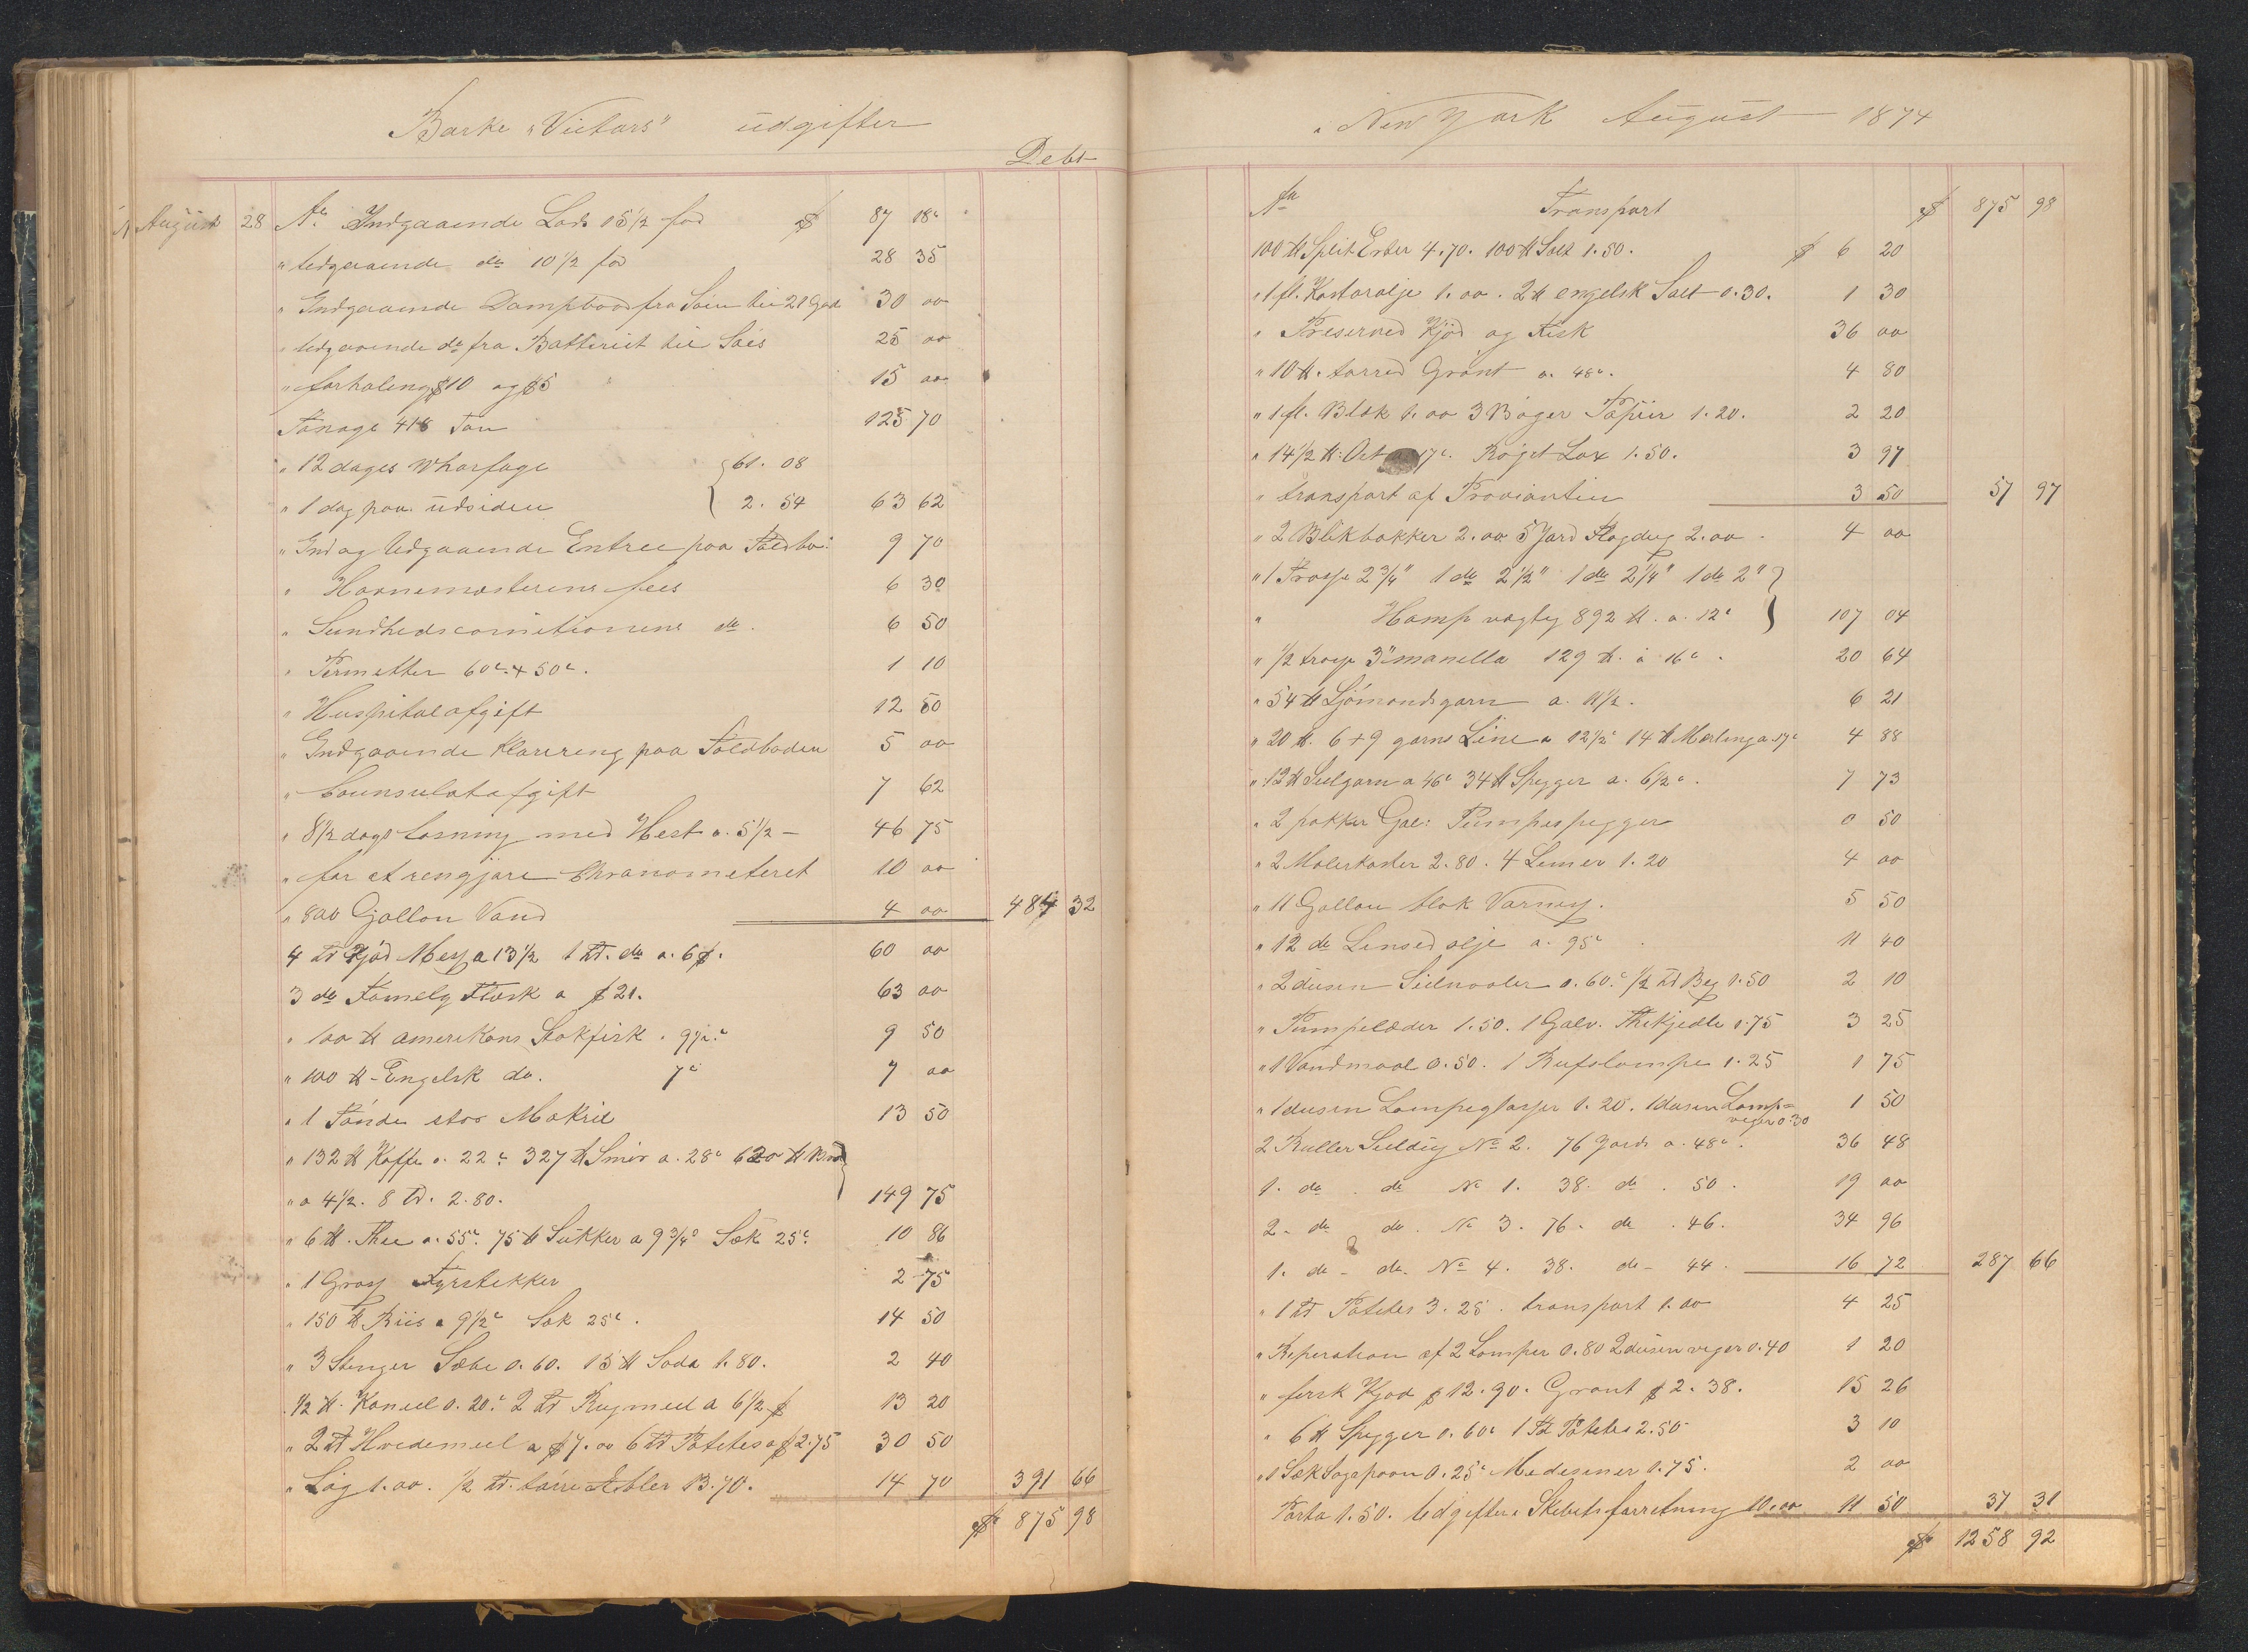 Barke "Victors" udgifter
Debt
August 28 An Indgaaende Lods 15 1/2 fod $ 87 18c
" Udgaaende do 10 1/2 fod 28 35
" Indgaaende Dampbaad fra Søen til 21 Gade 30 00
" Udgaaende do fra Batteriet til Søes 25 00
" forhaling $10 og $5 15 00
Tonage 418 Ton 125 70
" 12 dages Wharfage 61. 08
" 1 dag paa udsiden 2. 54 63 62
" Ind og Udgaaende Entree paa Toldbo: 9 70
" Havnemesterens fees 6 30
" Sundhedscomitionens do. 6 50
" Permetter 60c + 50c. 1 10
" Huspitalafgift 12 50
" Indgaaende Klarering paa Toldboden 5 00
" Counsulatafgift 7 62
" 8 1/2 dags Losning med Hest a. 5 1/2 - 46 75
" for at rengjøre Chronometeret 10 00
" 800 Gallon Vand 4 00 484 32
4 Td Kjød Mess a 13 1/2 1 Td. do a. 6 $. 60 00
3 do Famely Flesk a $21. 63 00
" 100 ℔ amerikans Stokfisk " 9 1/2c 9 50
" 100 ℔ - Engelsk do. 7c 7 00
" 1 Tønde stor Makril 13 50
" 132 ℔ Kaffe a. 22c. 327 ℔ Smør a. 28c 620 ℔ Brød
" a 4 1/2. 8 Td. 2.80. 149 75
" 6 ℔. Thee a. 55c. 75 ℔ Sukker a 9 3/4c Sæk 25c. 10 86
" 1 Gross Fyrstekker 2 75
" 150 ℔ Riis a 9 1/2c Sæk 25c. 14 50
" 3 Stenger Sæbe 0.60. 15 ℔ Soda 1.80. 2 40
1/2 ℔. Kaneel 0.20c. 2 Td Rugmeel a 6 1/2 $ 13 20
" 2 Td Hvedemeel a $7.00 6 Td Potetes a $2.75 30 50
" Løg 1.00. 1/2 Td. tørre Æbler 13.70. 14 70 391 66
$ 875 98
i New York August 1874
An Transport $ 875 98
100 ℔ Split Erter 4.70. 100 ℔ Salt 1.50. $ 6 20
" 1 fl. Kastorolje 1.00. 2 ℔ engelsk Salt 0.30. 1 30
" Preserved Kjød og Fisk 36 00
" 10 ℔. tørred Grønt a. 48c. 4 80
" 1 fl. Blæk 1.00 3 Bøger Papiir 1.20. 2 20
" 14 1/2 ℔: Ost 17c. Røget Lax 1.50. 3 97
" transport af Provianten 3 50 57 97
" 2 Blikbakker 2.00 5 Yard Flagdug 2.00 4 00
" 1 Trosse 2 3/4" 1 do 2 1/2" 1 do 2 1/4" 1 do 2"
" Hamp vægtig 892 ℔. a. 12c 107 04
" 1/2 trosse 3" manella 129 ℔. a 16c. 20 64
" 54 ℔ Sjømandsgarn a. 11 1/2. 6 21
" 20 ℔. 6 + 9 garns Line a 12 1/2c 14 ℔ Merling a 17c 4 88
" 12 ℔ Seilgarn a 46c 34 ℔ Spigger a. 6 1/2c. 7 73
" 2 pakker Gal: Pumpespigger 0 50
" 2 Malerkoster 2.80. 4 Limer 1.20 4 00
" 11 Gallon blak Varnis. 5 50
" 12 do Linsed olje a. 95c 11 40
" 2 dusin Seilnaaler 0.60.c 1/2 Td Beg 1.50 2 10
" Pumpelæder 1.50. 1 Galv. Thekjedle 1.75 3 25
" 1 Vandmaal 0.50. 1 Rufslampe 1.25 1 75
" 1 dusin Lampeglasser 1.20. 1 dusin Lamp=veger 0.30 1 50
2 Ruller Seildug No 2. 76 Yards a. 48c. 36 48
1. do. do No 1. 38. do. 50. 19 00
2 - do do. No 3. 76. do. 46. 34 96
1. do - do. No 4. 38. do - 44. 16 72 287 66
" 1 Td Potetes 3.25. transport 1.00 4 25
" Reperation af 2 Lamper 0.80 2 dusin veger 0.40 1 20
" fersk Kjød $12.90. Grønt $2.38. 15 26
" 6 ℔ Spigger 0.60c 1 Td Potetes 2.50 3 10
" 1 Sæk Sagaspaan 0.25c Medesiner 1.75. 2 00
Porto 1.50. Udgifter i Skibets forretning 10.00 11 50 37 31
$ 1258 92